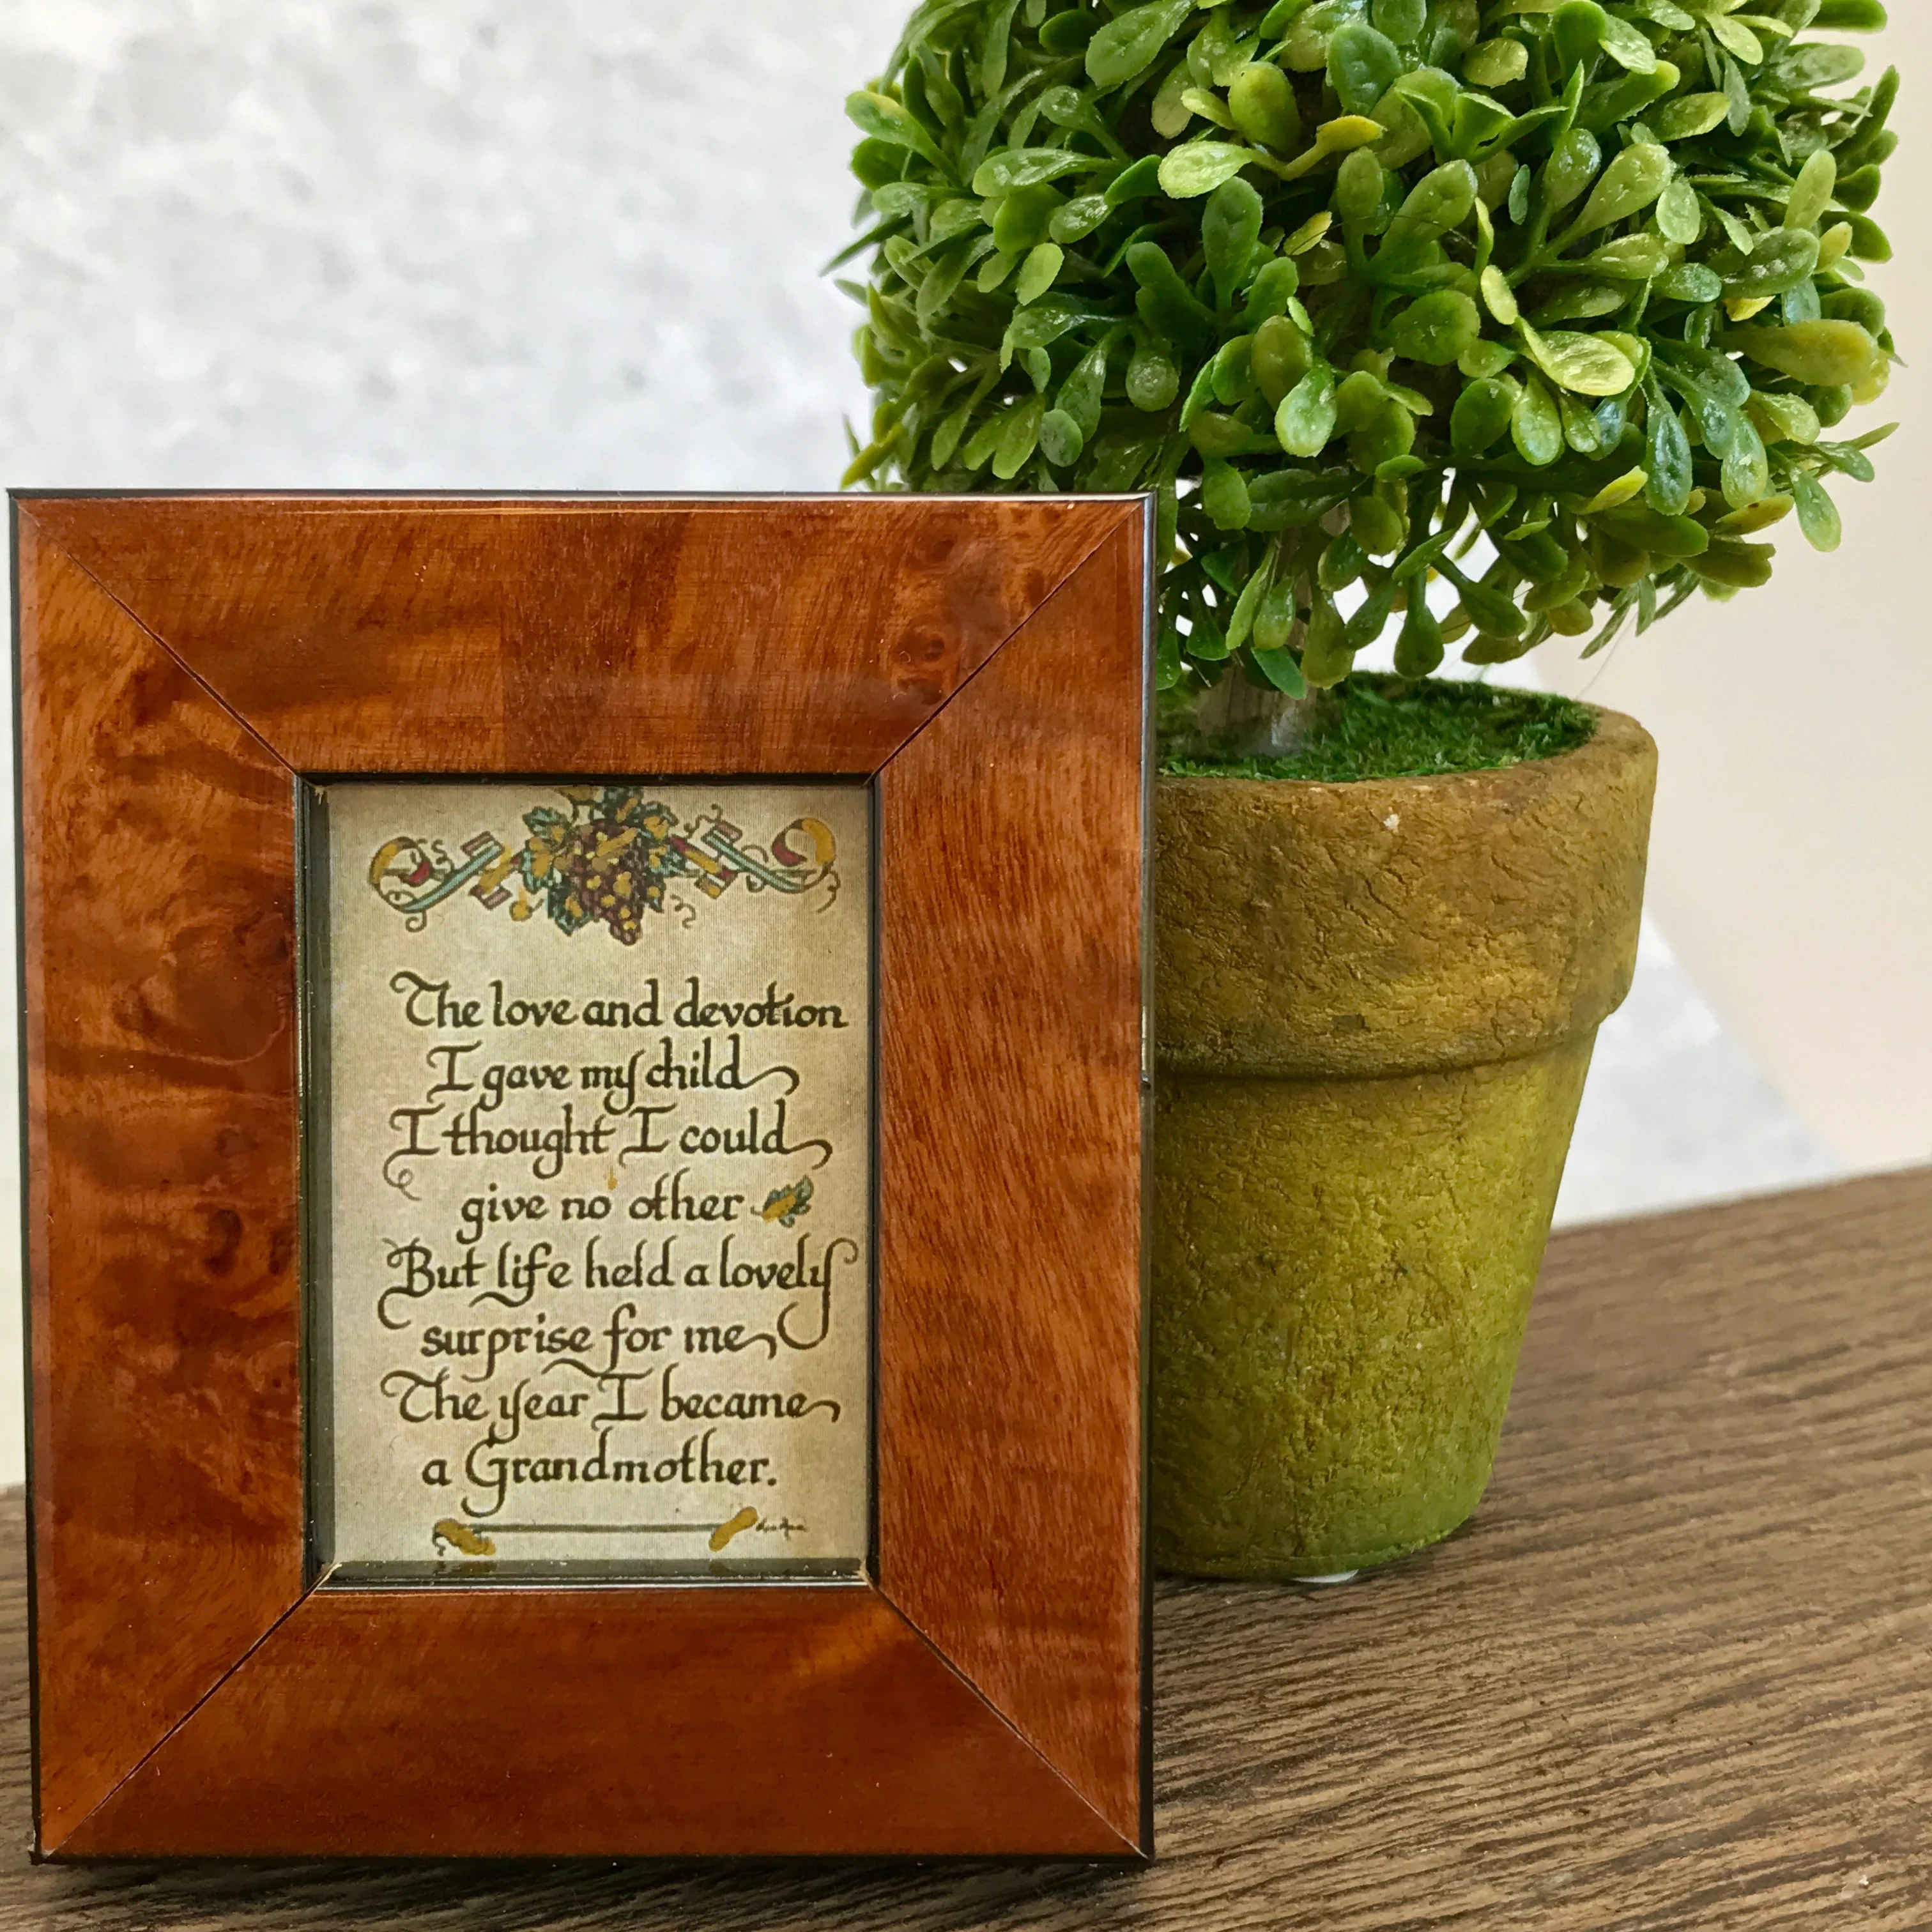 The love and devotion
I gave my child
I thought I could
give no other
But life held a lovely
surprise for me
The year I became
a Grandmother.